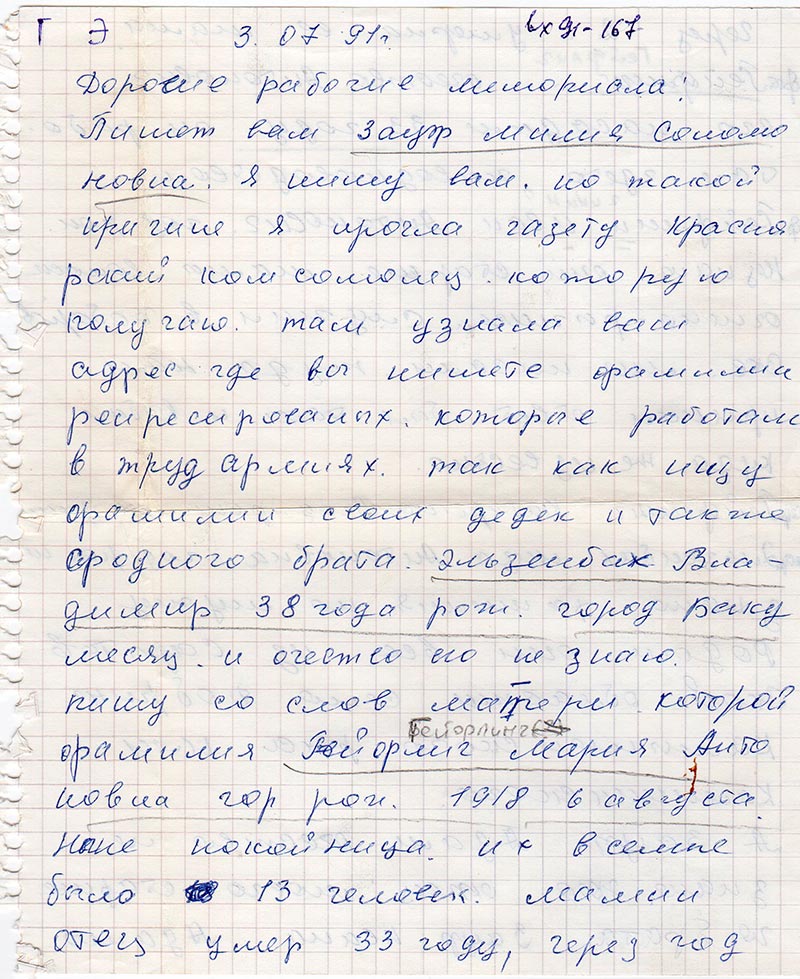 Г Э 3. 07 91г. вх 91-167
Дорогие рабочие мимориала!
Пишет вам Зауф милия Соломо
новна. Я пишу вам. по такой
причине я прочла газету Красно
рский комсомолец. которую
получаю. там узнала ваш
адрес где вы пишете фамилии
репресированых. которые работали
в труд армиях. так как ищу
фамилии своих дедек и также
сродного брата. Эльзенбах Вла-
димир 38 года рож. город Баку
месяц. и очество его не знаю.
пишу со слов матери. которой
Гейорлинг
фамилия Гейорлиг Мария Анто
новна гор рож. 1918 6 августа.
Ныне покойница. их в семье
было 13 человек. мамин
отец умер 33 году, через год